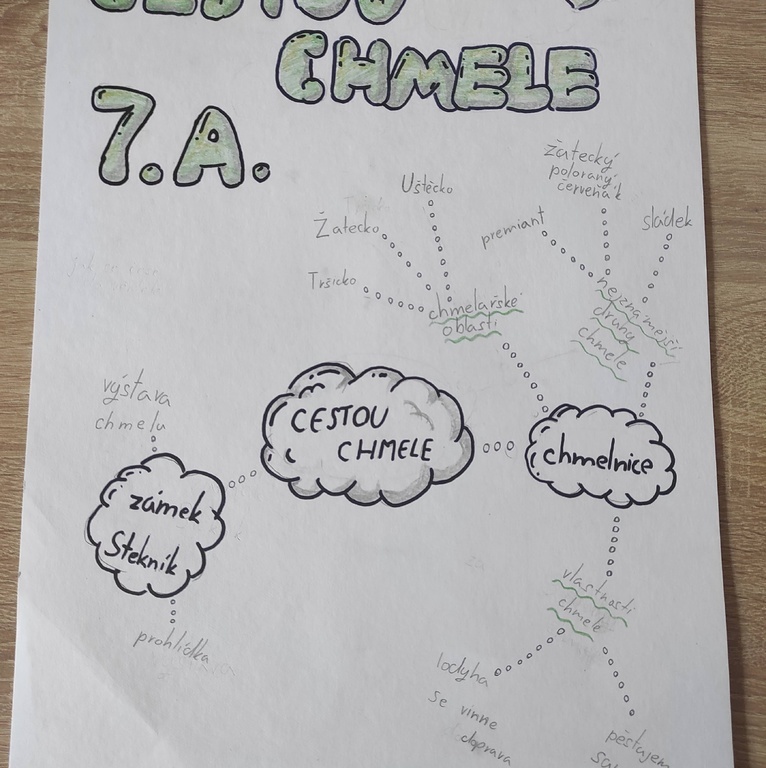 CESTOU
CHMELE
7.A.
Uštěcko
Žatecko
Tršicko
chmelařské
oblasti
Žatecký
poloraný
červeňák
premiant
sládek
nejznámější
druhy
chmele
výstava
chmelu
CESTOU
CHMELE
chmelnice
zámek
Stekník
prohlídka
vlastnosti
chmele
lodyha
se vinne
doprava
pěstujem